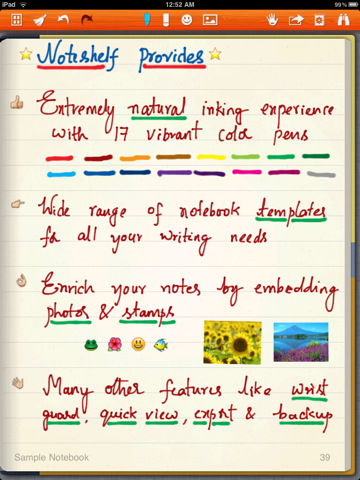 iPad 12:52 AM 93%
Noteshelf Provides
Extremely natural inking experience
with 17 vibrant color pens
Wide range of notebook templates
for all your writing needs
Enrich your notes by embedding
photos & stamps
Many other features like wrist
guard, quick view, export & backup
Sample Notebook 39